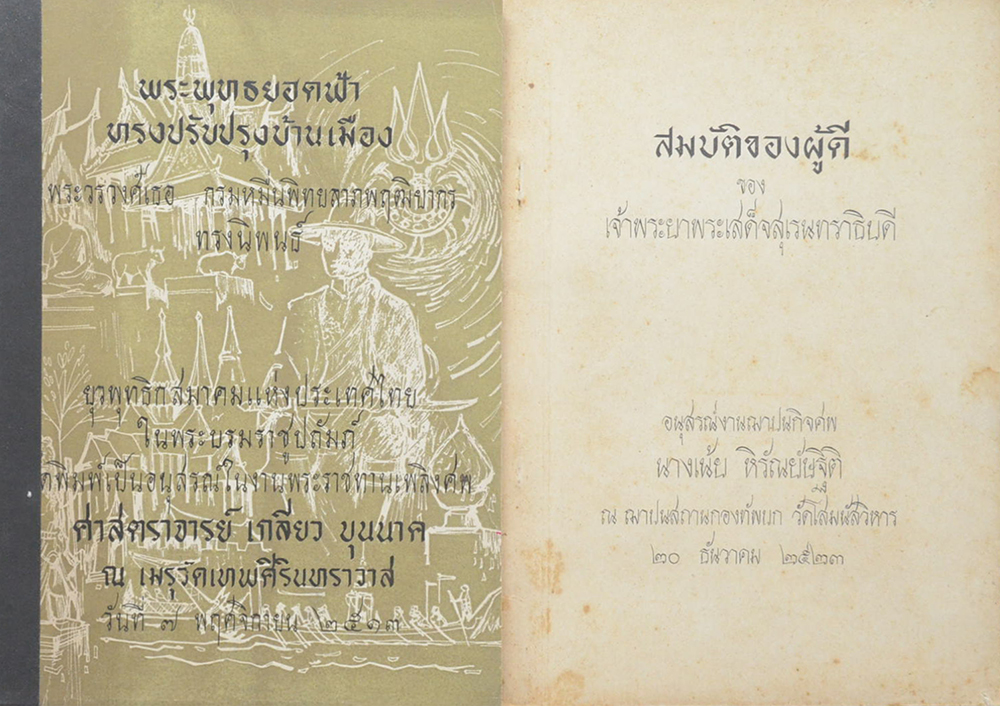 พระพุทธยอดฟ้า
ทรงปรับปรุงบ้านเมือง
พระวรวงศ์เธอ กรมหมื่นพิทยลาภพฤฒิยากร
ทรงนิพนธ์
ยุวพุทธิกสมาคมแห่งประเทศไทย
ในพระบรมราชูปถัมภ์
ดพิมพ์เป็นอนุสรณ์ในงานพระราชทานเพลิงศพ
ศาสตราจารย์ เกลียว บุนนาค
ณ เมรุวัดเทพศิรินทราวาส
วันที่ ๗ พฤศจิกายน ๒๕๑๓
สมบัติของผู้ดี
ของ
เจ้าพระยาพระเสด็จสุเรนทราธิบดี
อนุสรณ์งานฌาปนกิจศพ
นางเน้ย หิรัณยัษฐิติ
ณ ฌาปนสถานกองทัพบก วัดโสมนัสวิหาร
๒๐ ธันวาคม ๒๕๒๓